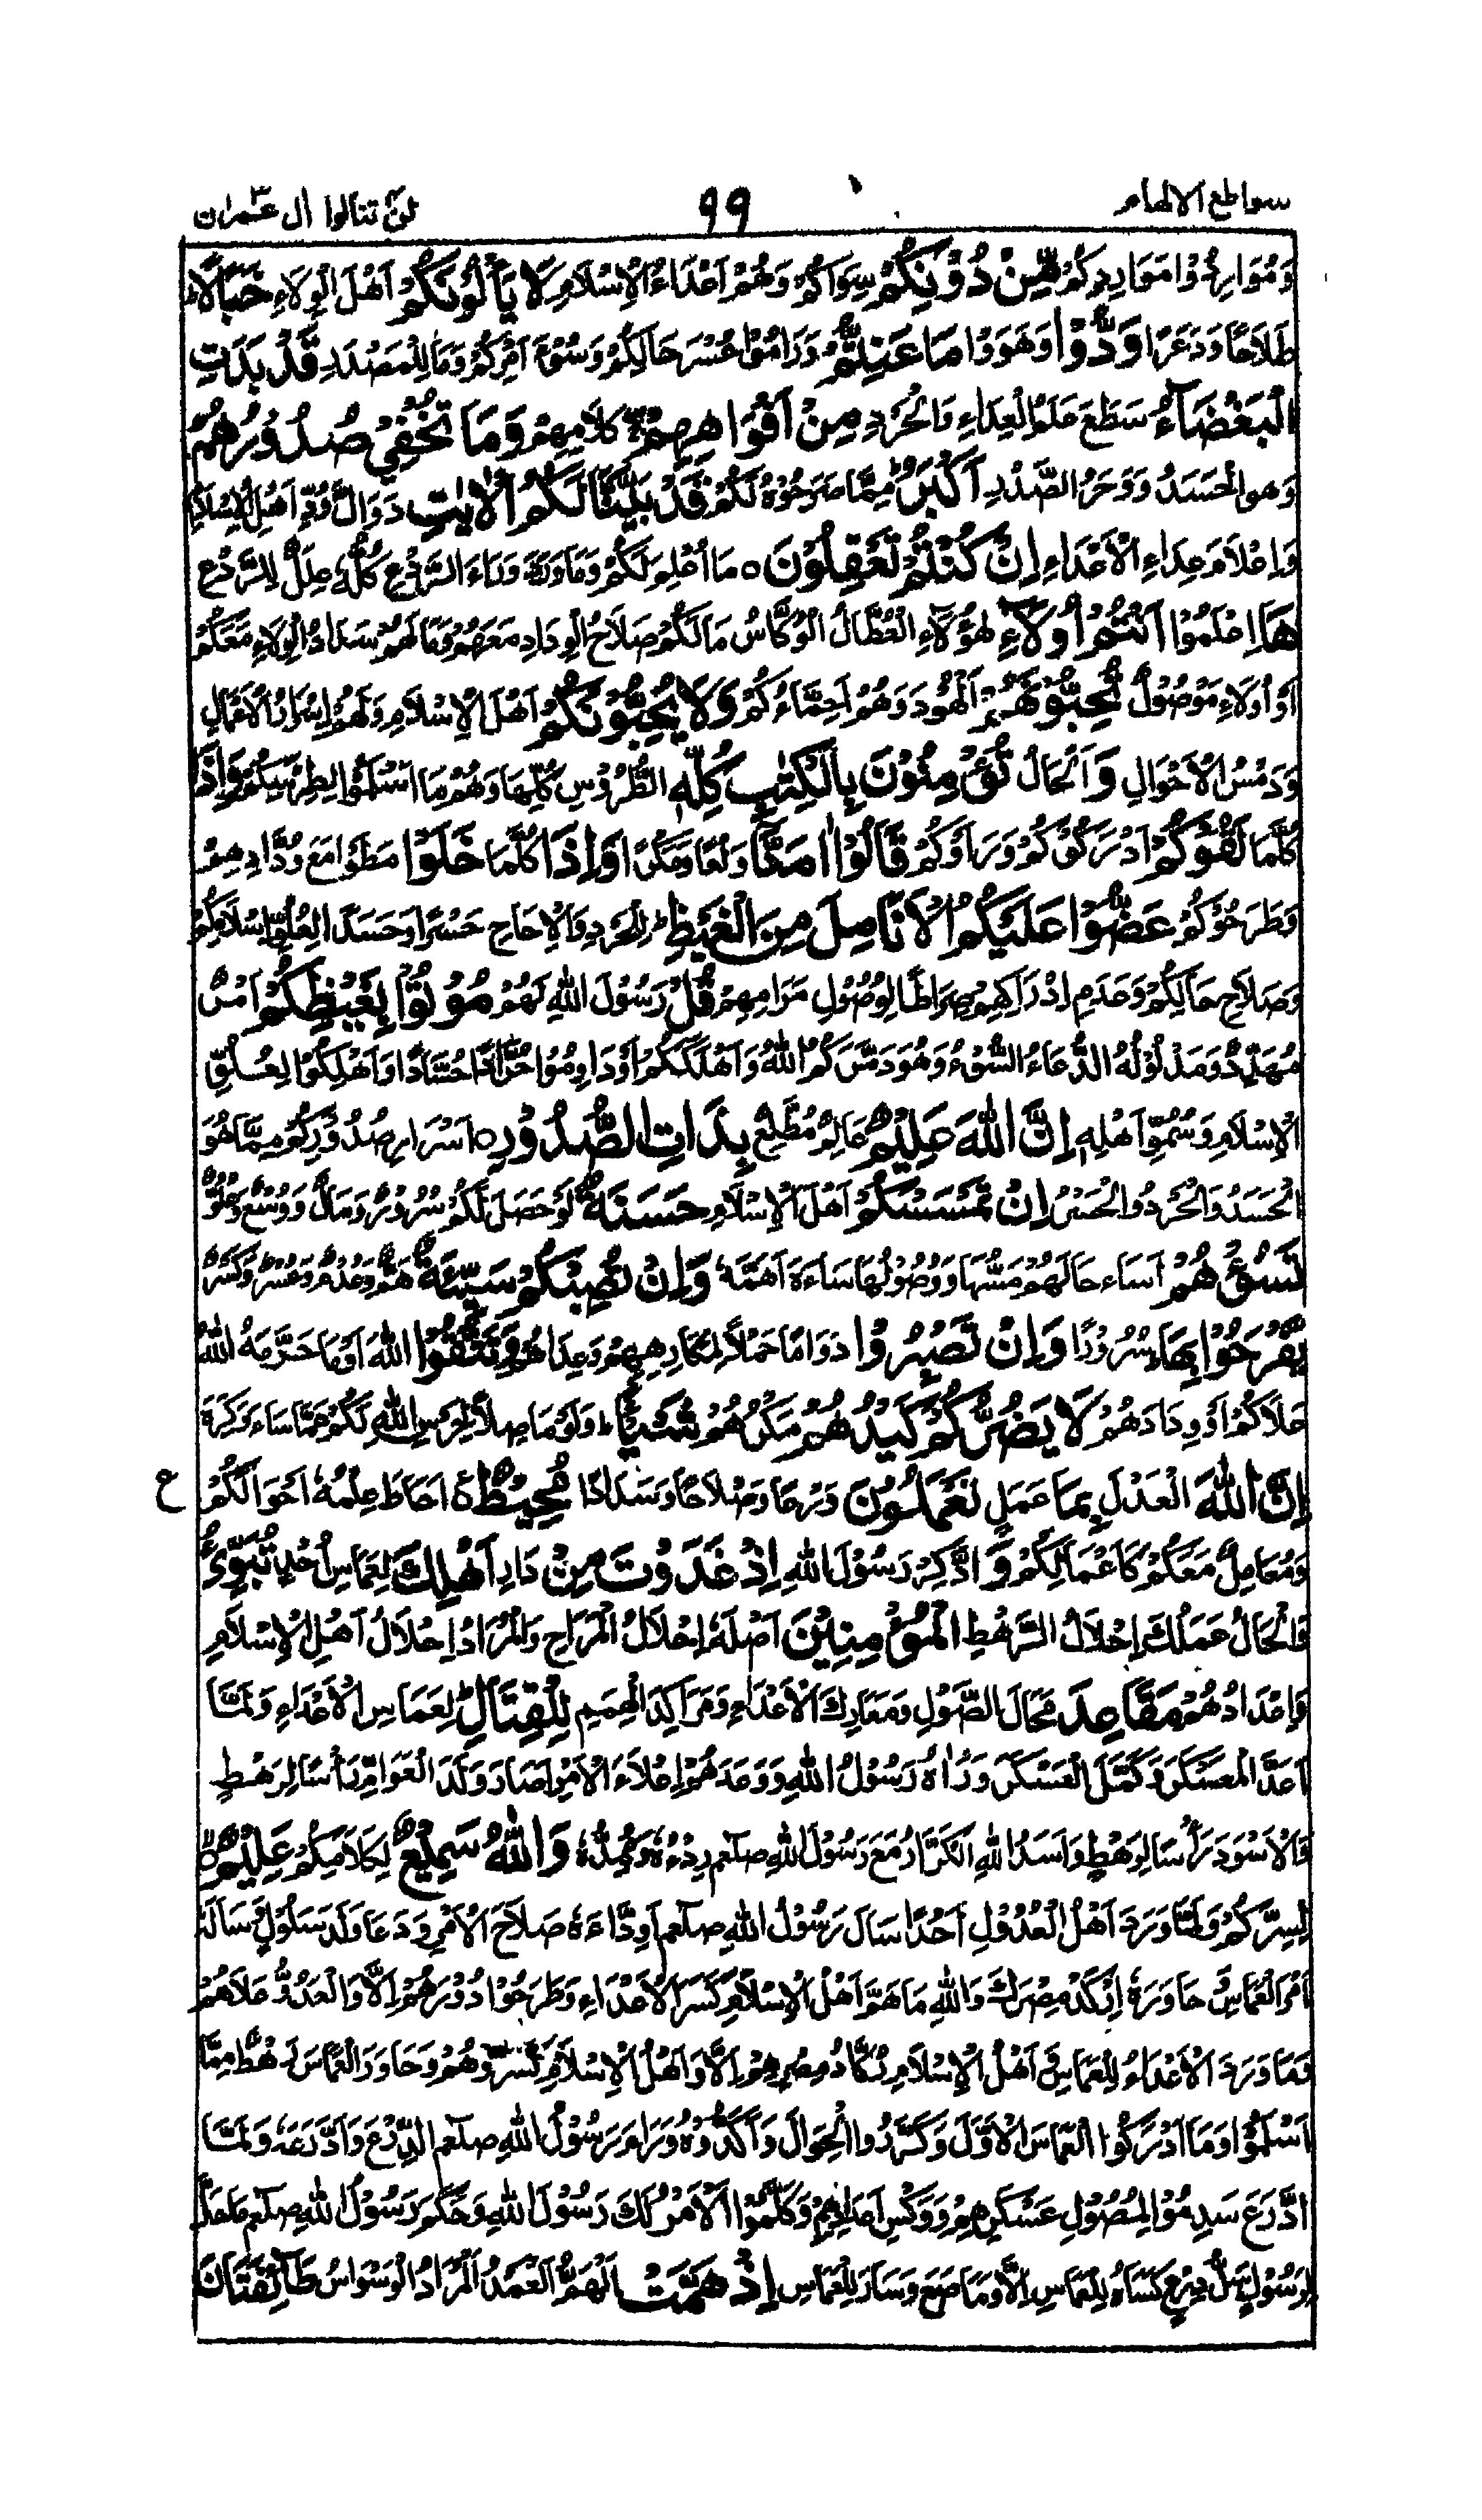 سواطع الالهام ٩٩ لن تنالوا ال عمران
مِّنْ دُوْنِكُمْ سِوَاكُمْ وَهُمْ اَعْدَاءُ الْاِسْلَامِ لَا يَاْلُوْنَكُمْ اَهْلَ الْوِلَاءِ خَبَالًا
وَدُّوْا مَا عَنِتُّمْ وَرَامُوْا عُسْرَ حَالِكُمْ وَسُوْءَ اَمْرِكُمْ وَمَا لِلْمَصْدَرِ قَدْ بَدَتِ
الْبَغْضَآءُ سَطَعَ عَلَمُ الْعِدَاءِ وَالْحَرَدِ مِنْ اَفْوَاهِهِمْ كَلَامِهِمْ وَمَا تُخْفِيْ صُدُوْرُهُمْ
وَهو الْحَسَدُ وَوَحَرُ الصَّدْرِ اَكْبَرُ مِمَّا صَرَّحُوْهُ لَكُمْ قَدْ بَيَّنَّا لَكُمُ الْاٰيٰتِ دَوَالَّ وُدِّ اَهْلِ الْاِسْلَامِ
وَاِعْلَامِ عِدَاءِ الْاَعْدَاءِ اِنْ كُنْتُمْ تَعْقِلُوْنَ ○ مَا اُعْلِمَ لَكُمْ وَمَا وَرَاءَ الرَّدْعِ كُلُّهُ عِلَلٌ لِلرَّدْعِ
هَا اِعْلَمُوْا اَنْتُمْ اُولَآءِ هٰؤُلَاءِ مَا لَكُمْ صَلَاحُ الْوِدَادِ مَعَهُمْ وَمَا لَهُمْ سَدَادُ الْوِلَاءِ مَعَكُمْ
اَوْ اُولَاءِ مَوْصُوْلٌ تُحِبُّوْنَهُمْ الْهُوْدَ وَهُمْ اَحِمَّاءُكُمْ وَلَا يُحِبُّوْنَكُمْ اَهْلَ الْاِسْلَامِ وَلَهُمْ اِسْرَارُ الْاَعْمَالِ
وَدَمْسُ الْاَحْوَالِ وَالْحَالُ تُؤْمِنُوْنَ بِالْكِتٰبِ كُلِّهٖ الطُّرُوْسِ كُلِّهَا وَهُمْ مَا اَسْلَمُوْا لِطِرْسِكُمْ وَاِذَا
كُلَّمَا لَقُوْكُمْ اَدْرَكُوْكُمْ وَرَاَوْكُمْ قَالُوْا اٰمَنَّا وَلْعًا وَمَكْرًا وَاِذَا كُلَّمَا خَلَوْا مَعَ وُدَّادِهِمْ
وَطَرَحُوْكُمْ عَضُّوْا عَلَيْكُمُ الْاَنَامِلَ مِنَ الْغَيْظِ لِلْحَرَدِ وَالْاِحَاحِ حَسْرًا وَحَسَدًا لِعُلُوِّ اِسْلَامِكُمْ
وَصَلَاحِ حَالِكُمْ وَعَدَمِ اِدْرَاكِهِمْ صِرَاطًا لِوُصُوْلِ مَرَامِهِمْ قُلْ رَسُوْلَ اللّٰهِ لَهُمْ مُوْتُوْا بِغَيْظِكُمْ اَمْرٌ
مُهَدِّدٌ وَمَدْلُوْلُهُ الدُّعَاءُ السُّوْءُ وَهُوَ دَمَّرَكُمُ اللّٰهُ وَاَهْلَكَكُمْ اَوْ دَاوِمُوْا حُسَّادًا وَاهْلِكُوْا لِعُلُوِّ
الْاِسْلَامِ وَسُمُوِّ اَهْلِهِ اِنَّ اللّٰهَ عَلِيْمٌ عَالِمٌ مُطَّلِعٌ بِذَاتِ الصُّدُوْرِ ○ اَسْرَارِ صُدُوْرِكُمْ مِمَّا هُوَ
الْحَسَدُ وَالْحَرَدُ وَالْحَسْرُ اِنْ تَمْسَسْكُمْ اَهْلَ الْاِسْلَامِ حَسَنَةٌ لَوْ حَصَلَ لَكُمْ سُرُوْرٌ وَمَالٌ وَوُسْعٌ وَعُلُوٌّ
تَسُؤْهُمْ اَسَاءَ حَالَهُمْ مَسُّهَا وَوُصُوْلُهَا سَاءَهُ اَهَمَّهُ وَاِنْ تُصِبْكُمْ سَيِّئَةٌ هَمٌّ وَعُدْمٌ وَعُسْرٌ وَكَسْرٌ
يَّفْرَحُوْا بِهَا سُرُوْرًا وَاِنْ تَصْبِرُوْا دَوَامًا حَمْلًا لِمَكَارِهِهِمْ وَعِدَاهُمْ وَتَتَّقُوْا اللّٰهَ اَوْ مَا حَرَّمَهُ اللّٰهُ
لَا يَضُرُّكُمْ كَيْدُهُمْ مَكْرُهُمْ شَيْئًا وَلَوْ مَاصِلًا لِحَرْسِ اللّٰهِ لَكُمْ عَمَّا سَاءَ وَكَرِهَ
اِنَّ اللّٰهَ الْعَدْلَ بِمَا عَمَلٍ تَعْمَلُوْنَ وَرَعًا وَصَلَاحًا وَسَدَادًا مُحِيْطٌ ○ اَحَاطَ عِلْمُهُ اَحْوَالَكُمْ
ع
وَمُعَامِلٌ مَعَكُمْ كَاَعْمَالِكُمْ وَ ادَّكِرْ رَسُوْلَ اللّٰهِ اِذْ غَدَوْتَ مِنْ دَارِ اَهْلِكَ لِعَمَاسِ اُحُدٍ تُبَوِّئُ
وَالْحَالُ عَمَلُكَ اِحْلَالُ الرَّهْطِ الْمُؤْمِنِيْنَ اَصْلُهُ اِحْلَالُ الْمَرَاحِ وَالْمُرَادُ اِحْلَالُ اَهْلِ الْاِسْلَامِ
وَاِعْدَادُهُمْ مَقَاعِدَ مَحَالَّ الصَّوْلِ وَمَعَارِكَ الْاَعْدَاءِ وَمَرَاكِدَ الْهِمَمِ لِلْقِتَالِ لِعَمَاسِ الْاَعْدَاءِ وَلَمَّا
اَعَدَّ الْمُعَسْكَرَ وَكَمَّلَ الْعَسْكَرَ وَرَاٰهُ رَسُوْلُ اللّٰهِ وَوَعَدَهُمْ اِعْلَاءَ الْاَمْرِ صَارَ وَلَدُ الْعَوَّامِ رَاْسًا لِرَهْطٍ
وَالْاَسْوَدُ رَاْسًا لِرَهْطٍ وَاَسَدُ اللّٰهِ الْكَرَّارُ مَعَ رَسُوْلِ اللّٰهِ صلعم رِدْءُهُ وَمُمِدُّهُ وَاللّٰهُ سَمِيْعٌ لِكَلَامِكُمْ عَلِيْمٌ
لِسِرِّكُمْ وَلَمَّا وَرَدَ اَهْلُ الْعُدُوْلِ اُحُدًا سَاَلَ رَسُوْلُ اللّٰهِ صلعم اَوِدَّاءَهُ صَلَاحَ الْاَمْرِ وَدَعَا وَلَدَ سَلُوْلٍ وَسَاَلَهُ
اَمْرَ الْعَمَاسِ حَاوَرَهُ اُرْكُدْ مِصْرَكَ وَاللّٰهِ مَا هَمَّ اَهْلُ الْاِسْلَامِ كَسْرَ الْاَعْدَاءِ وَطَرَحُوْا دُوْرَهُمْ اِلَّا وَالْعَدُوُّ عَلَاهُمْ
وَمَا وَرَدَ الْاَعْدَاءُ لِعَمَاسِ اَهْلِ الْاِسْلَامِ رُكَّادُ مِصْرِهِمْ اِلَّا وَاَهْلُ الْاِسْلَامِ كَسَرُوْهُمْ وَحَاوَرَ الْعَمَاسَ رَهْطٌ مِمَّا
اَسْلَمُوْا وَمَا اَدْرَكُوا الْعَمَاسَ الْاَوَّلَ وَكَرَّرُوا الْحِوَالَ وَاَكَّدُوْهُ وَرَامَ رَسُوْلُ اللّٰهِ صلعم الدِّرْعَ وَادَّرَعَهُ وَلَمَّا
ادَّرَعَ سَدِمُوْا عَسْكَرِهِمْ وَوَكْسِ وَكَلَّمُوْا الْاَمْرُ لَكَ رَسُوْلَ اللّٰهِ وَحَكَمَ رَسُوْلُ اللّٰهِ صلعم مَا حَلَّ
لِرَسُوْلٍ سَلُّ دِرْعٍ كَسَاهُ لِلْعَمَاسِ اِلَّا وَمَا صَعَ وَسَارَ لِلْعَمَاسِ اِذْ هَمَّتْ الْهَمُّ الْعَمْدُ الْمُرَادُ الْوَسْوَاسُ طَآئِفَتَانِ